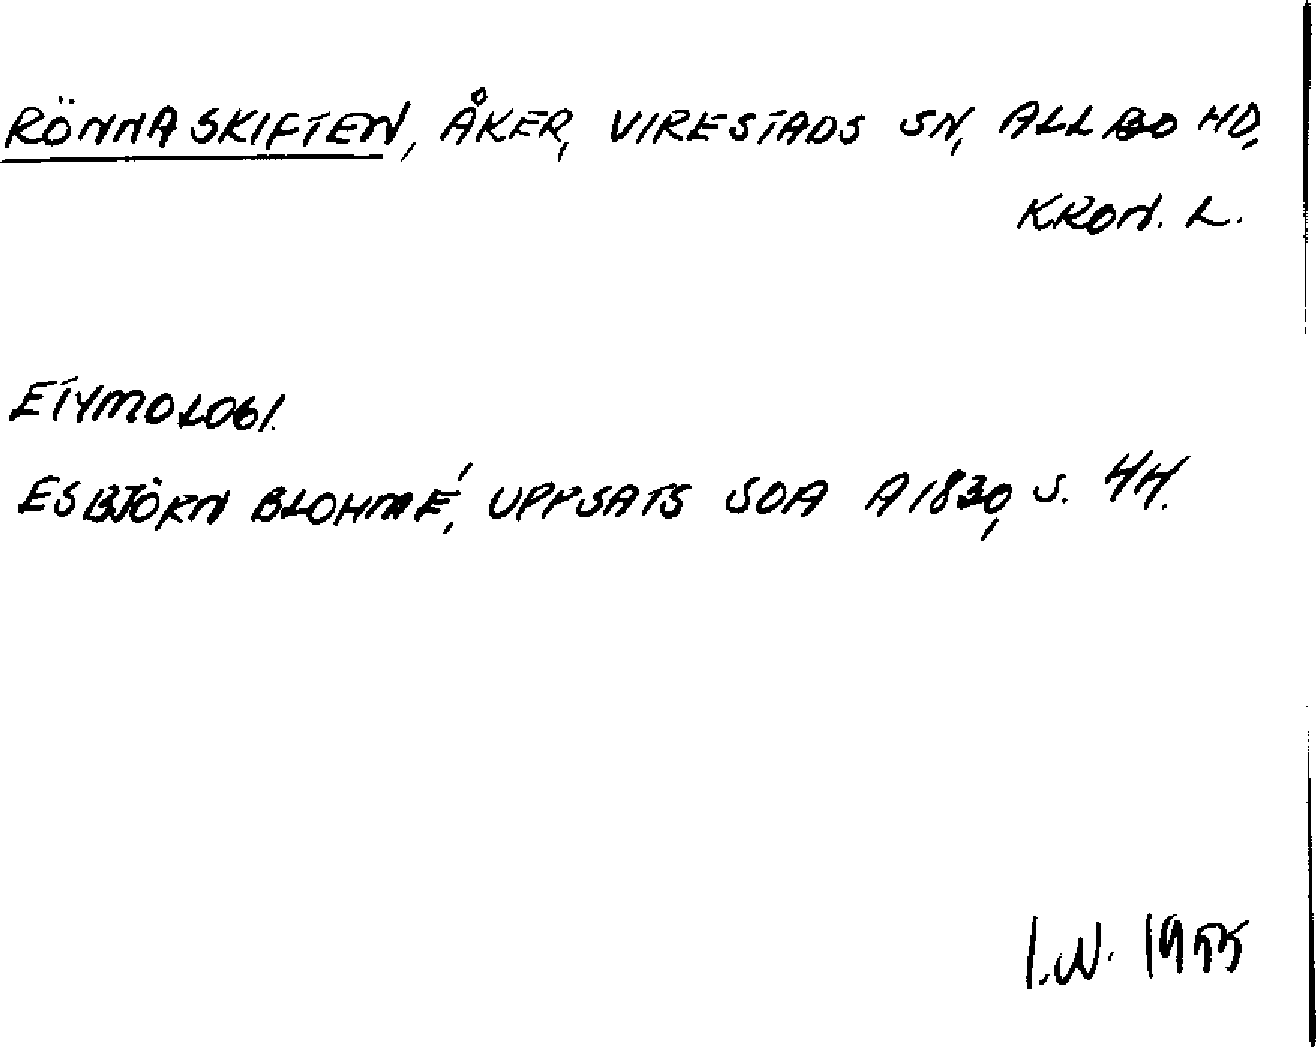 RÖNNASKIFTEN, ÅKER, VIRESTADS SN, ALLBO HD,
KRON. L.
ETYMOLOGI.
ESBJÖRN BLOHMÉ, UPPSATS SOA A1830, S. 44.
I.W. 1955